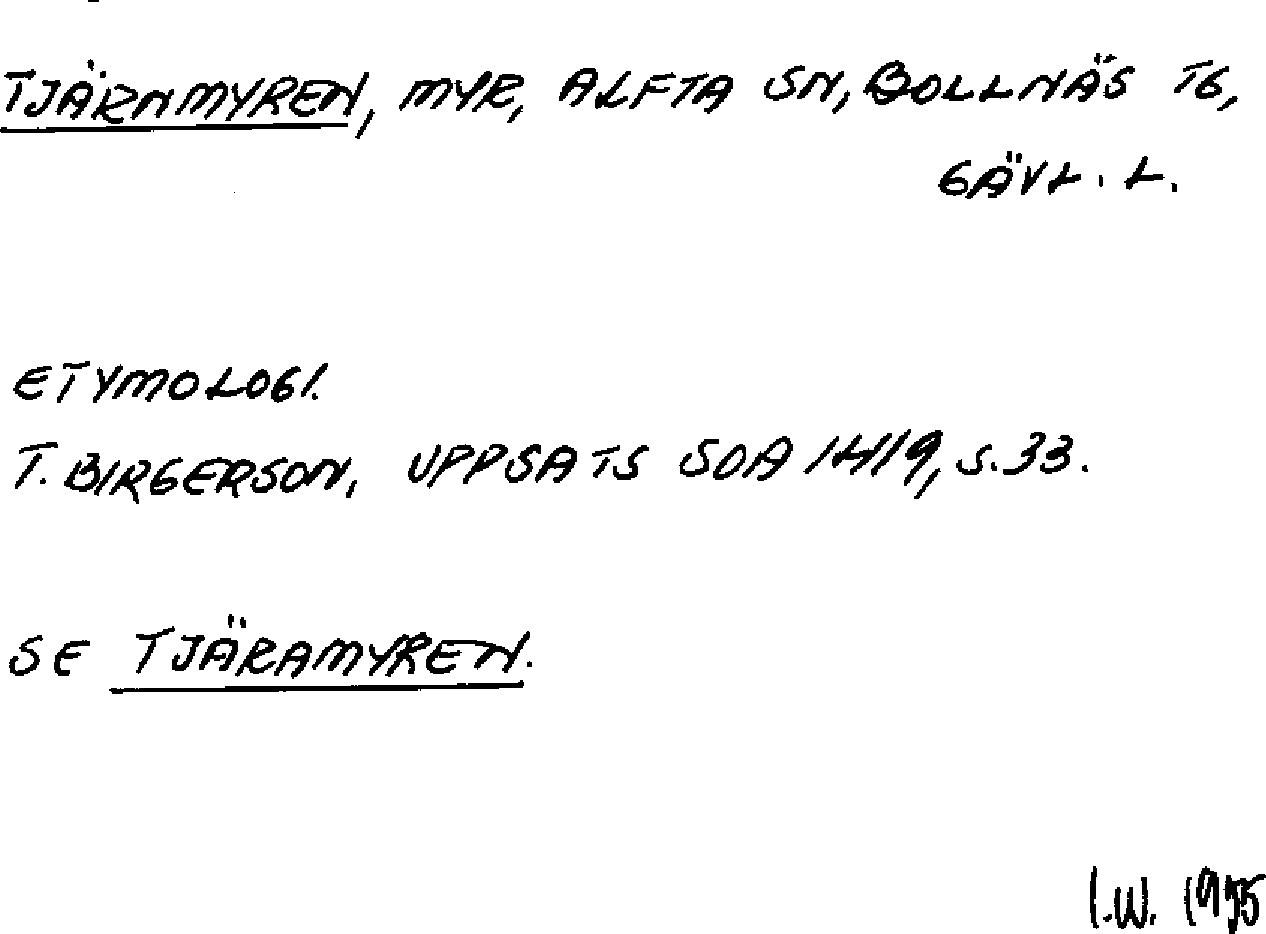 TJÄRNMYREN, MYR, ALFTA SN, BOLLNÄS TG,
GÄVL. L.
ETYMOLOGI.
T. BIRGERSON, UPPSATS SOA 1419, S. 33.
SE TJÄRAMYREN.
I.W.